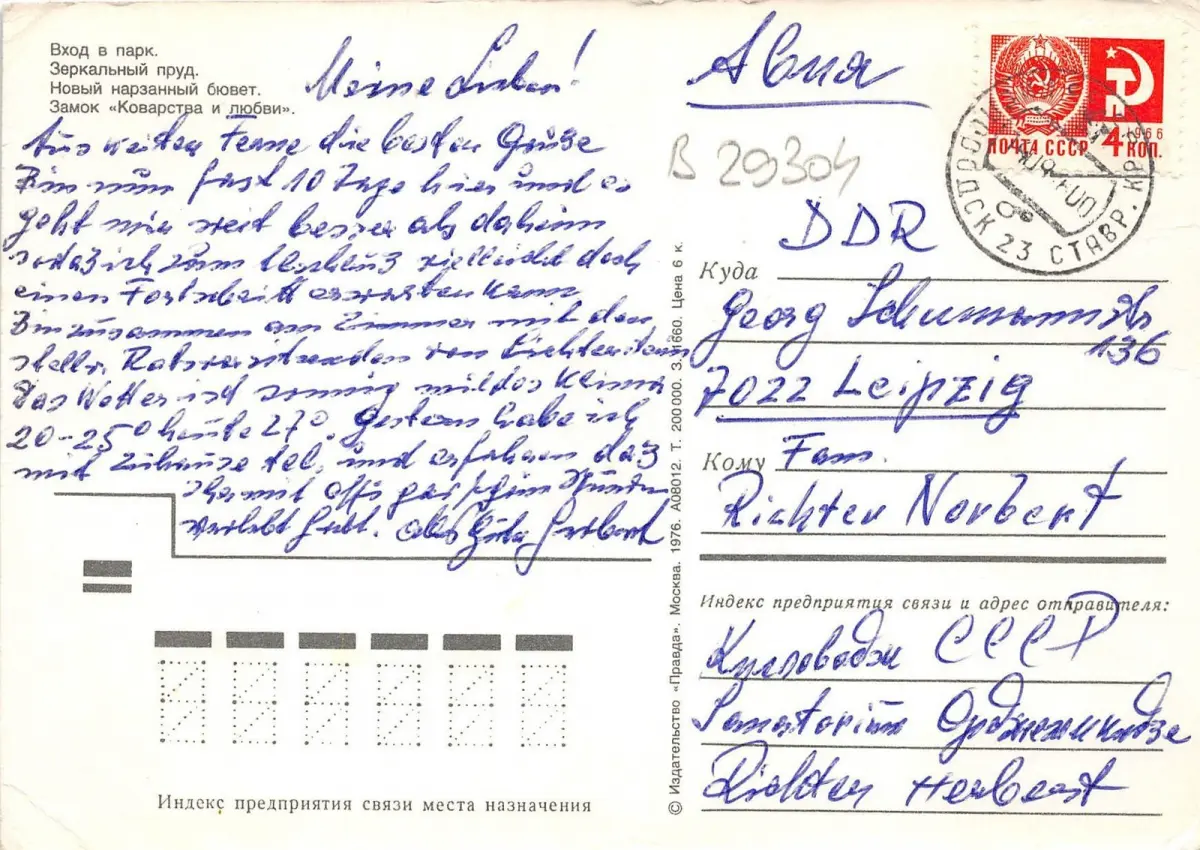 Вход в парк.
Зеркальный пруд.
Новый нарзанный бювет.
Замок «Коварства и любви».
Meine Lieben!
Aus weiter Ferne die besten Grüße
Bin nun fast 10 Tage hier und es
geht mir weit besser als daheim
sodaß ich zum vielleicht doch
einen Fortschritt erwarten kann
Bin zusammen am Zimmer mit dem
stellv. Ratsvorsitzenden von
Das Wetter ist sonnig mildes Klima
20-25° heute 27°. Gestern habe ich
mit Zuhause tel. und erfahren daß
Ihr mit
verlebt habt. Alles Gute Herbert
Авиа
B 29304
1966
ПОЧТА СССР 4 КОП.
23 СТАВР. КР
DDR
Куда
Georg Schumannstr
136
7022 Leipzig
Кому Fam.
Richter Norbert
Индекс предприятия связи и адрес отправителя:
Кисловодск СССР
Sanatorium Орджоникидзе
Richter Herbert
© Издательство «Правда». Москва. 1976. А08012. Т. 200 000. З. 1660. Цена 6 к.
Индекс предприятия связи места назначения